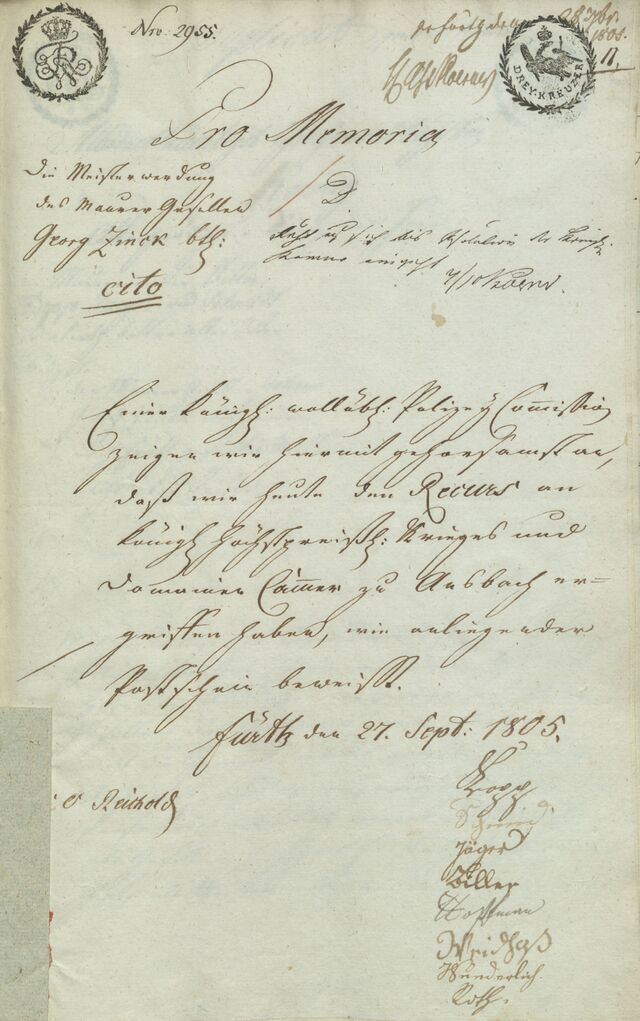 Nro. 2955.
1805.
11.
DREY-KREUZER
Pro Memoria
Die Meisterwerdung
des Maurer Gesellen
Georg Zinck btl:
cito
D
Einer Königl: wollöbl: Polizey Commission
zeigen wir hiermit gehorsamst an,
daß wir heute den Recurs an
Königl höchstpreißl: Krieges und
Domainen Cammer zu Ansbach er=
griffen haben, wie anliegender
Postschein beweißt.
Fürth den 27. Sept: 1805.
Reithold
Kopp
Jäger
Biller
Hoffmann
Weidhaß
Wunderlich.
Roth.